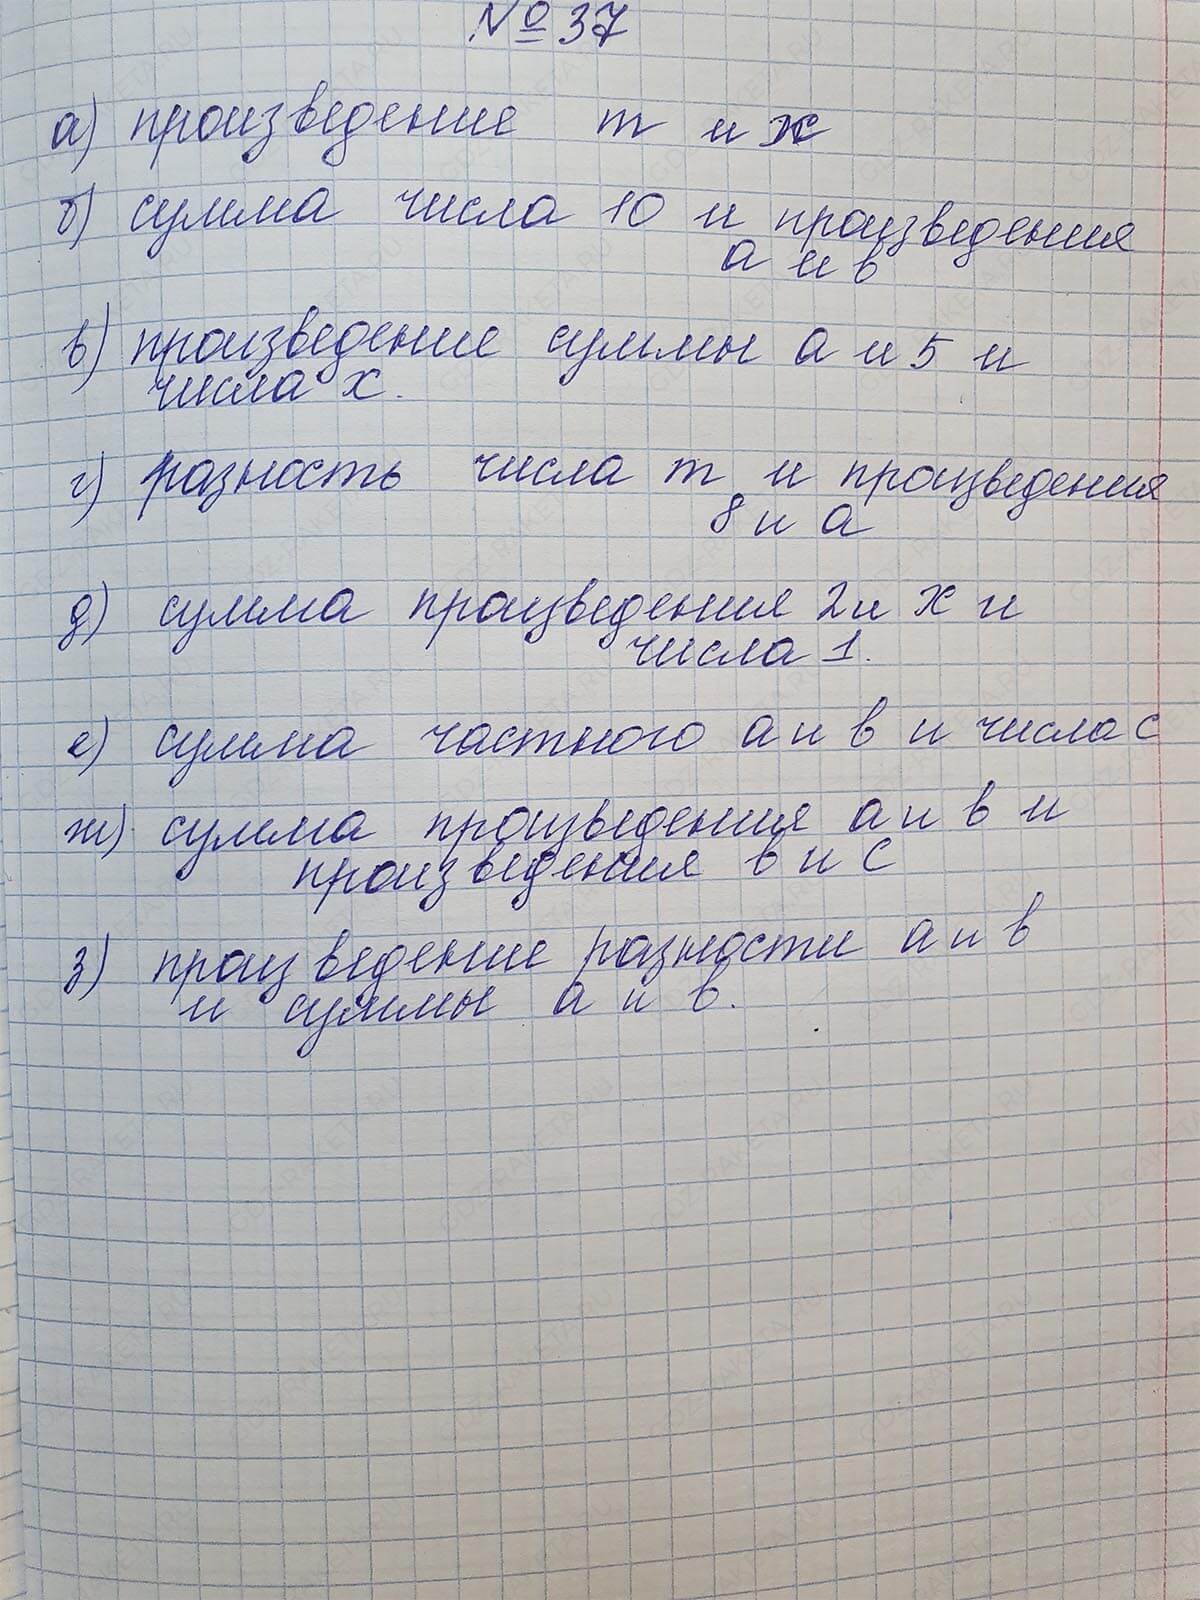 № 37
а) произведение m и x
б) сумма числа 10 и произведения
a и в
в) произведение суммы a и 5 и
числа x.
г) разность числа m и произведения
8 и a
д) сумма произведения 2 и x и
числа 1.
е) сумма частного a и в и числа c
ж) сумма произведения a и в и
произведения в и c
з) произведение разности a и в
и суммы a и в.